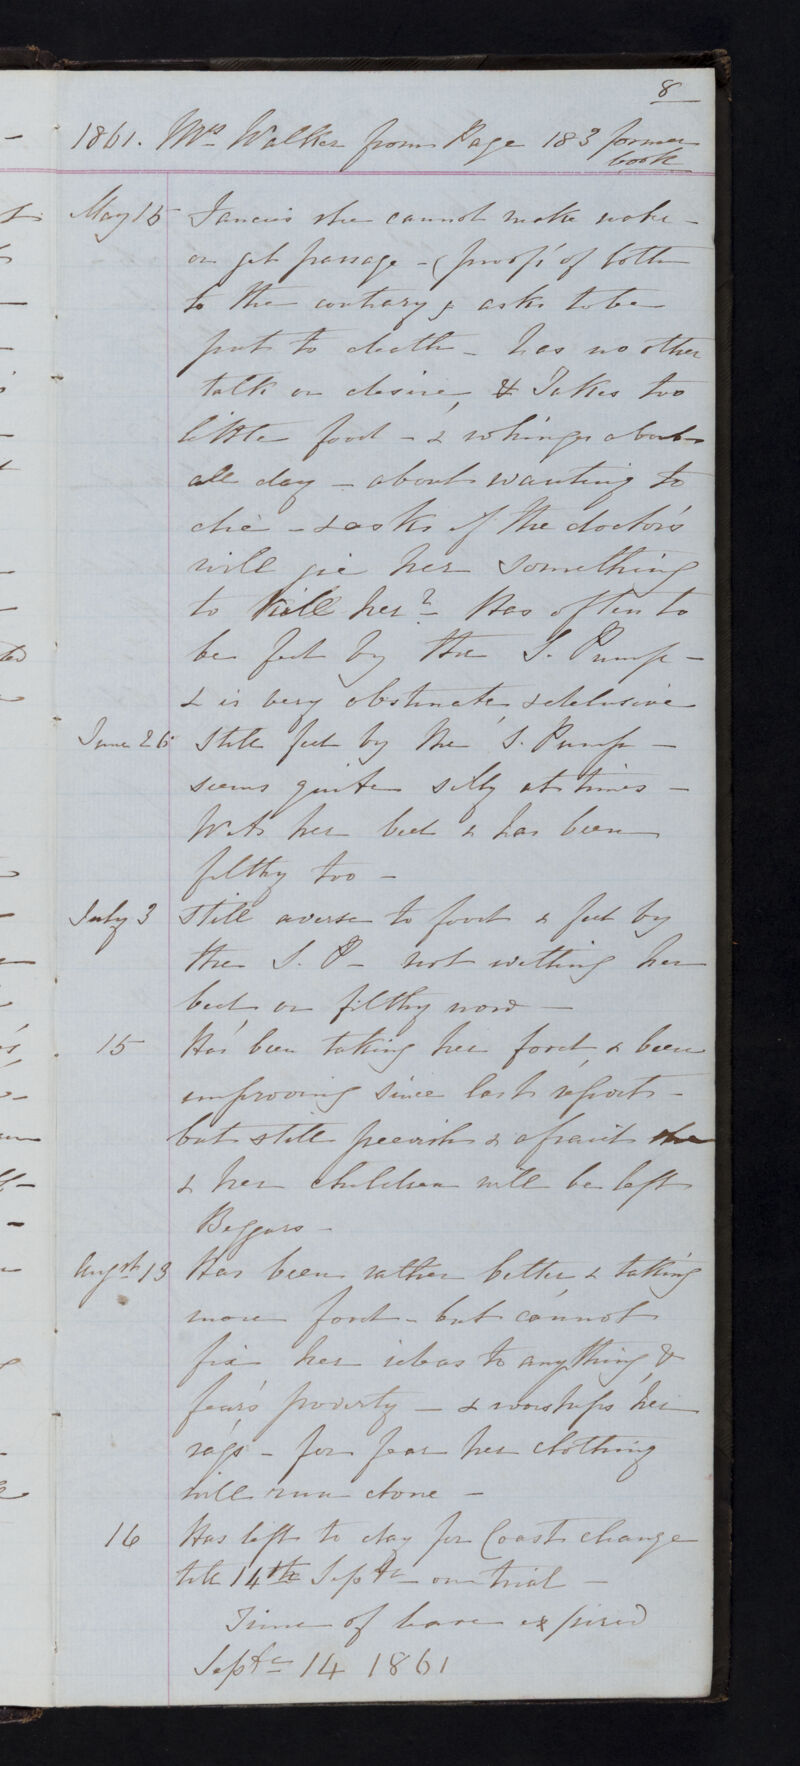 8
1861. Mrs Walker from Page 183 former
book
May 15 Fancies she cannot make water -
or get passage - (proofs of both
to the contrary & asks to be
put to death - has no other
talk or desire, & Takes too
little food - & whinges about
all day - about wanting to
die - & asks if the doctors
will gie her something
to kill her? Has often to
be fed by the S. Pump -
& is very obstinate, & delusive
June 26 Still fed by the S. Pump -
seems quite silly at times -
Wets her bed & has been
filthy too -
July 3 Still averse to food & fed by
the S. P - not wetting her
bed or filthy now -
15 Has been taking her food, & been
improving since last report -
but still peevish & afraid she
& her children will be left
Beggars -
Augst 13 Has been rather better & taking
more food - but cannot
fix her ideas to anything, &
fears poverty - & worships her
rags - for fear her clothing
will run done -
16 Has left to day for Coast change
till 14th Septr on trial -
Time of leave expired
Septr 14 1861